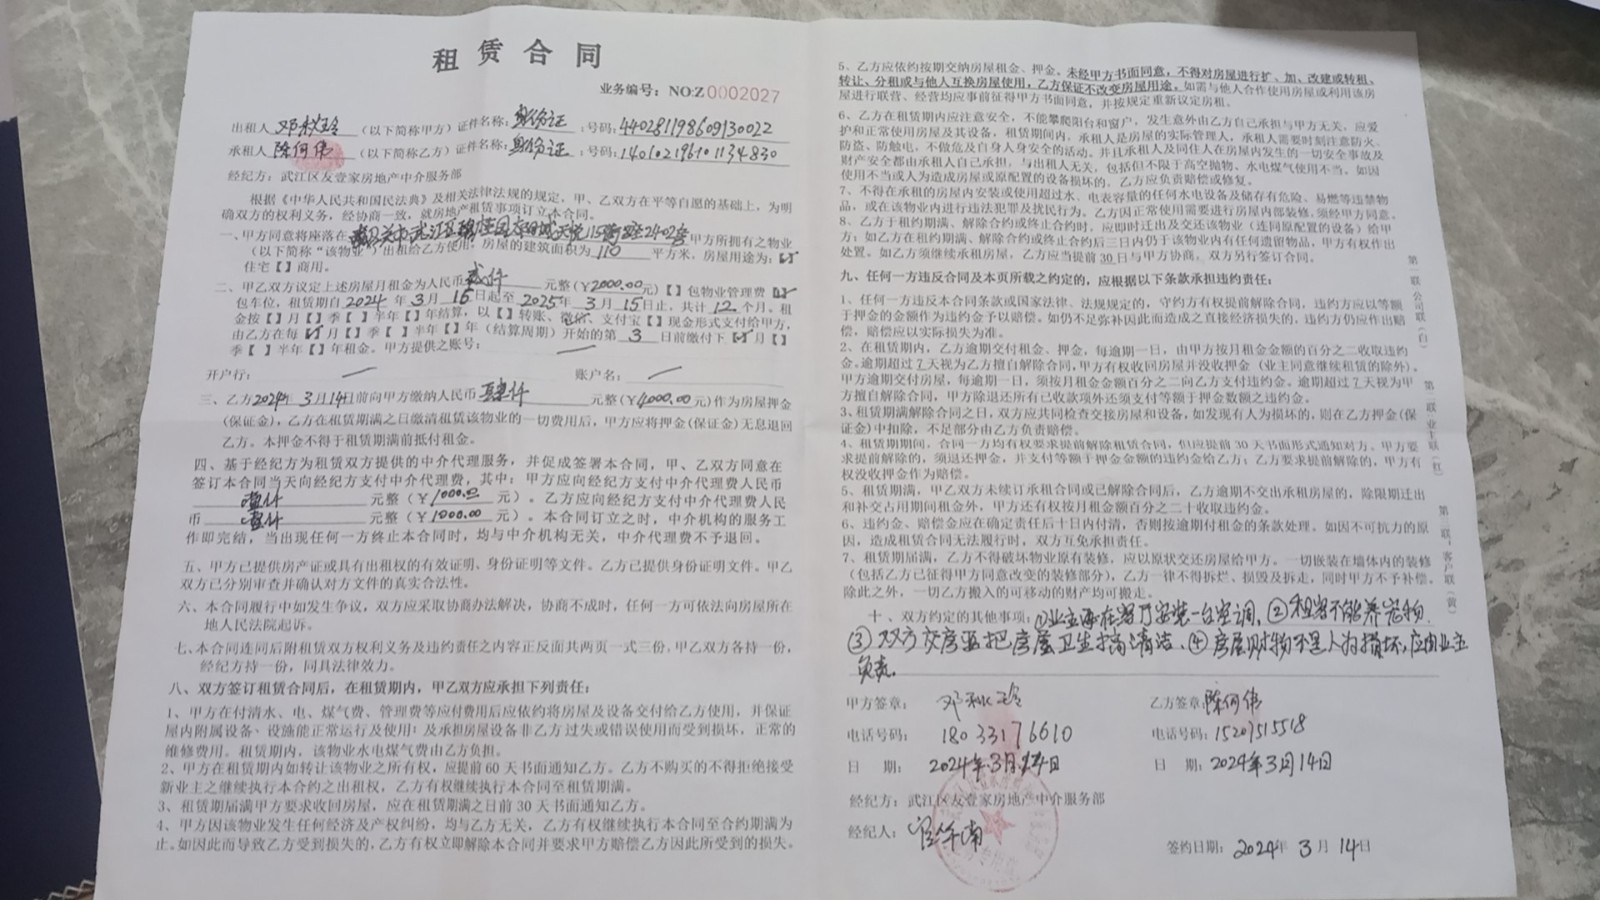 租赁合同
业务编号：NO:Z0002027
出租人 邓秋玲 （以下简称甲方）证件名称：身份证 ；号码：440281198609130022
承租人 陈何伟 （以下简称乙方）证件名称：身份证 ；号码：140102196101134830
经纪方：武江区友壹家房地产中介服务部
根据《中华人民共和国民法典》及相关法律法规的规定，甲、乙双方在平等自愿的基础上，为明
确双方的权利义务，经协商一致，就房地产租赁事项订立本合同。
一、甲方同意将座落在 韶关市武江区 2402房 甲方所拥有之物业
（以下简称“该物业”）出租给乙方使用，房屋的建筑面积为 110 平方米，房屋用途为：【✓】
住宅【 】商用。
二、甲乙双方议定上述房屋月租金为人民币 贰仟 元整（￥2000.00元）【 】包物业管理费【✓】
包车位，租赁期自 2024 年 3 月 16 日起至 2025 年 3 月 15 日止，共计 12 个月。租
金按【 】月【 】季【 】半年【 】年结算，以【 】转账、微信、支付宝【 】现金形式支付给甲方，
由乙方在每【✓】月【 】季【 】半年【 】年（结算周期）开始的第 3 日前缴付下【✓】月【 】
季【 】半年【 】年租金。甲方提供之账号：
开户行： 账户名：
三、乙方 2024年 3月14日前向甲方缴纳人民币 肆仟 元整（￥4000.00元）作为房屋押金
（保证金），乙方在租赁期满之日缴清租赁该物业的一切费用后，甲方应将押金（保证金）无息退回
乙方。本押金不得于租赁期满前抵付租金。
四、基于经纪方为租赁双方提供的中介代理服务，并促成签署本合同，甲、乙双方同意在
签订本合同当天向经纪方支付中介代理费，其中：甲方应向经纪方支付中介代理费人民币
壹仟 元整（￥1000.00 元）。乙方应向经纪方支付中介代理费人民
币 壹仟 元整（￥1000.00 元）。本合同订立之时，中介机构的服务工
作即完结，当出现任何一方终止本合同时，均与中介机构无关，中介代理费不予退回。
五、甲方已提供房产证或具有出租权的有效证明、身份证明等文件。乙方已提供身份证明文件。甲乙
双方已分别审查并确认对方文件的真实合法性。
六、本合同履行中如发生争议，双方应采取协商办法解决，协商不成时，任何一方可依法向房屋所在
地人民法院起诉。
七、本合同连同后附租赁双方权利义务及违约责任之内容正反面共两页一式三份，甲乙双方各持一份，
经纪方持一份，同具法律效力。
八、双方签订租赁合同后，在租赁期内，甲乙双方应承担下列责任：
1、甲方在付清水、电、煤气费、管理费等应付费用后应依约将房屋及设备交付给乙方使用，并保证
屋内附属设备、设施能正常运行及使用；及承担房屋设备非乙方过失或错误使用而受到损坏，正常的
维修费用。租赁期内，该物业水电煤气费由乙方负担。
2、甲方在租赁期内如转让该物业之所有权，应提前60天书面通知乙方。乙方不购买的不得拒绝接受
新业主之继续执行本合约之出租权，乙方有权继续执行本合同至租赁期满。
3、租赁期届满甲方要求收回房屋，应在租赁期满之日前30天书面通知乙方。
4、甲方因该物业发生任何经济及产权纠纷，均与乙方无关，乙方有权继续执行本合同至合约期满为
止。如因此而导致乙方受到损失的，乙方有权立即解除本合同并要求甲方赔偿乙方因此所受到的损失。
5、乙方应依约按期交纳房屋租金、押金。未经甲方书面同意，不得对房屋进行扩、加、改建或转租、
转让、分租或与他人互换房屋使用，乙方保证不改变房屋用途。如需与他人合作使用房屋或利用该房
屋进行联营、经营均应事前征得甲方书面同意，并按规定重新议定房租。
6、乙方在租赁期内应注意安全，不能攀爬阳台和窗户，发生意外由乙方自己承担与甲方无关，应爱
护和正常使用房屋及其设备，租赁期间内，承租人是房屋的实际管理人，承租人需要时刻注意防火、
防盗、防触电，不做危及自身人身安全的活动。并且承租人及同住人在房屋内发生的一切安全事故及
财产安全都由承租人自己承担，与出租人无关，包括但不限于高空抛物、水电煤气使用不当。如因
使用不当或人为造成房屋或原配置的设备损坏的，乙方应负责赔偿或修复。
7、不得在承租的房屋内安装或使用超过水、电表容量的任何水电设备及储存有危险、易燃等违禁物
品，或在该物业内进行违法犯罪及扰民行为。乙方因正常使用需要进行房屋内部装修，须经甲方同意。
8、乙方于租约期满、解除合约或终止合约时，应即时迁出及交还该物业（连同原配置的设备）给甲
方；如乙方在租约期满、解除合约或终止合约后三日内仍于该物业内有任何遗留物品，甲方有权作出
处置。如乙方须继续承租房屋，乙方应当提前30日与甲方协商，双方另行签订合同。
九、任何一方违反合同及本页所载之约定的，应根据以下条款承担违约责任：
1、任何一方违反本合同条款或国家法律、法规规定的，守约方有权提前解除合同，违约方应以等额
于押金的金额作为违约金予以赔偿。如仍不足弥补因此而造成之直接经济损失的，违约方仍应作出赔
偿，赔偿应以实际损失为准。
2、在租赁期内，乙方逾期交付租金、押金，每逾期一日，由甲方按月租金金额的百分之二收取违约
金。逾期超过7天视为乙方擅自解除合同，甲方有权收回房屋并没收押金（业主同意继续租赁的除外）。
甲方逾期交付房屋，每逾期一日，须按月租金金额百分之二向乙方支付违约金。逾期超过7天视为甲
方擅自解除合同，甲方除退还所有已收款项外还须支付等额于押金数额之违约金。
3、租赁期满解除合同之日，双方应共同检查交接房屋和设备，如发现有人为损坏的，则在乙方押金（保
证金）中扣除，不足部分由乙方负责赔偿。
4、租赁期期间，合同一方均有权要求提前解除租赁合同，但应提前30天书面形式通知对方。甲方要
求提前解除的，须退还押金，并支付等额于押金金额的违约金给乙方；乙方要求提前解除的，甲方有
权没收押金作为赔偿。
5、租赁期满，甲乙双方未续订承租合同或已解除合同后，乙方逾期不交出承租房屋的，除限期迁出
和补交占用期间租金外，甲方还有权按月租金额百分之二十收取违约金。
6、违约金、赔偿金应在确定责任后十日内付清，否则按逾期付租金的条款处理。如因不可抗力的原
因，造成租赁合同无法履行时，双方互免承担责任。
7、租赁期届满，乙方不得破坏物业原有装修，应以原状交还房屋给甲方。一切嵌装在墙体内的装修
（包括乙方已征得甲方同意改变的装修部分），乙方一律不得拆烂、损毁及拆走，同时甲方不予补偿。
除此之外，一切乙方搬入的可移动的财产均可搬走。
十、双方约定的其他事项：①业主再在客厅安装一台空调，②租客不能养宠物，
③双方交房要把房屋卫生搞清洁，④房屋财物不是人为损坏，应由业主
负责。
甲方签章： 邓秋玲 乙方签章：陈何伟
电话号码： 18033176610 电话号码：15207515518
日 期： 2024年3月14日 日 期：2024年3月14日
经纪方：武江区友壹家房地产中介服务部
经纪人：
签约日期：2024年 3 月 14日
第一联 公司联（白）
第二联 业主联（红）
第三联：客户联（黄）